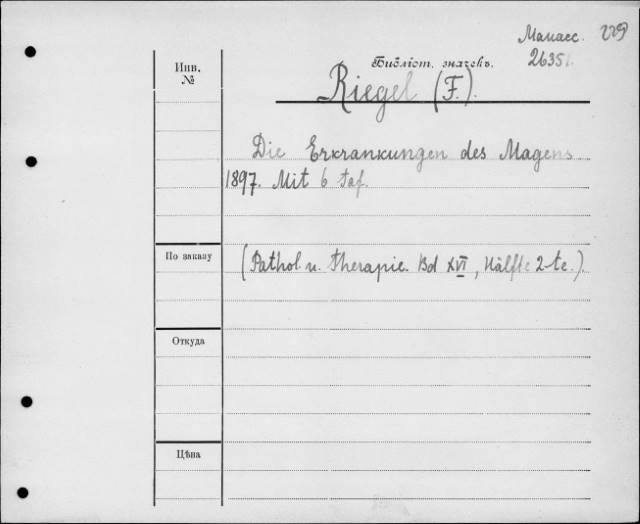 Манасс. 229
Библіот. значекъ. 26351.
Инв.
№
Riegel (F.).
Die Erkrankungen des Magens
1897. Mit 6 taf.
По заказу
(Pathol u. therapie. Bd XVI, Hälfte 2-te.).
Откуда
Цѣна